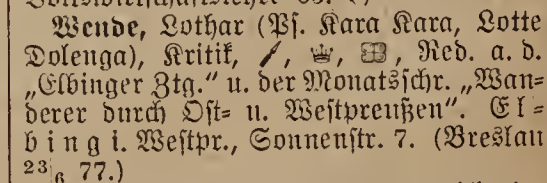 Wende, Lothar (Ps. Kara Kara, Lotte
Dolenga), Kritik, Red. a. d.
„Elbinger Ztg.“ u. der Monatsschr. „Wan-
derer durch Ost- u. Westpreußen“. El-
bing i. Westpr., Sonnenstr. 7. (Breslau
23/6 77.)